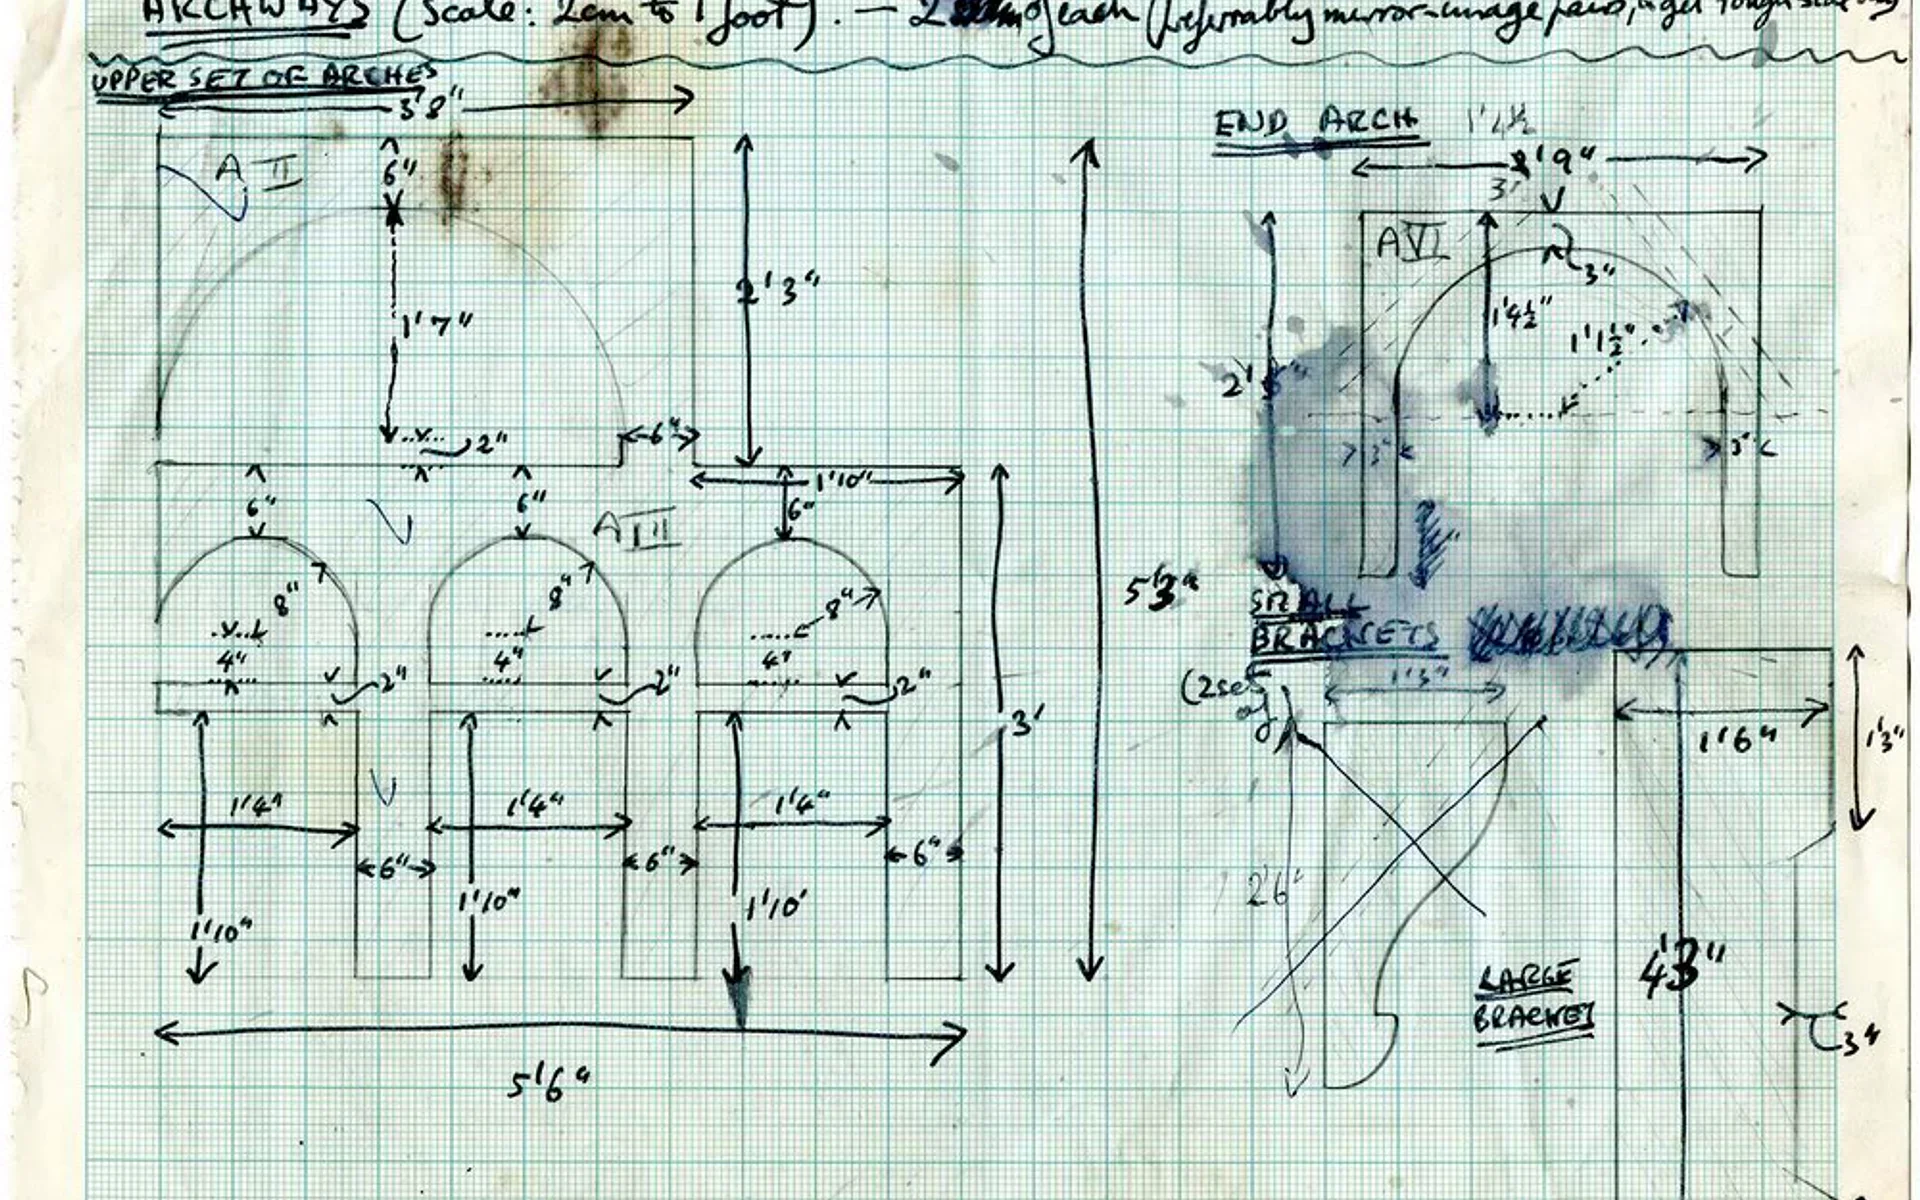 ARCHWAYS (Scale: 2cm to 1 foot). — 2 of each (preferably mirror-image pairs,
UPPER SET OF ARCHES
3'8"
A II
6"
1'7"
2"
6"
2'3"
5'3"
1'10"
6"
6"
6"
A III
8"
8"
8"
4"
4"
4"
2"
2"
2"
3'
1'4"
1'4"
1'4"
6"
6"
6"
1'10"
1'10"
1'10'
5'6"
END ARCH
1'4½
9"
3"
A VI
3"
1'4½"
1'1½"
2'
3"
3"
SMALL
BRACKETS
(2 sets
of
1'3"
2'6"
LARGE
BRACKET
1'6"
1'3"
4'3"
3"